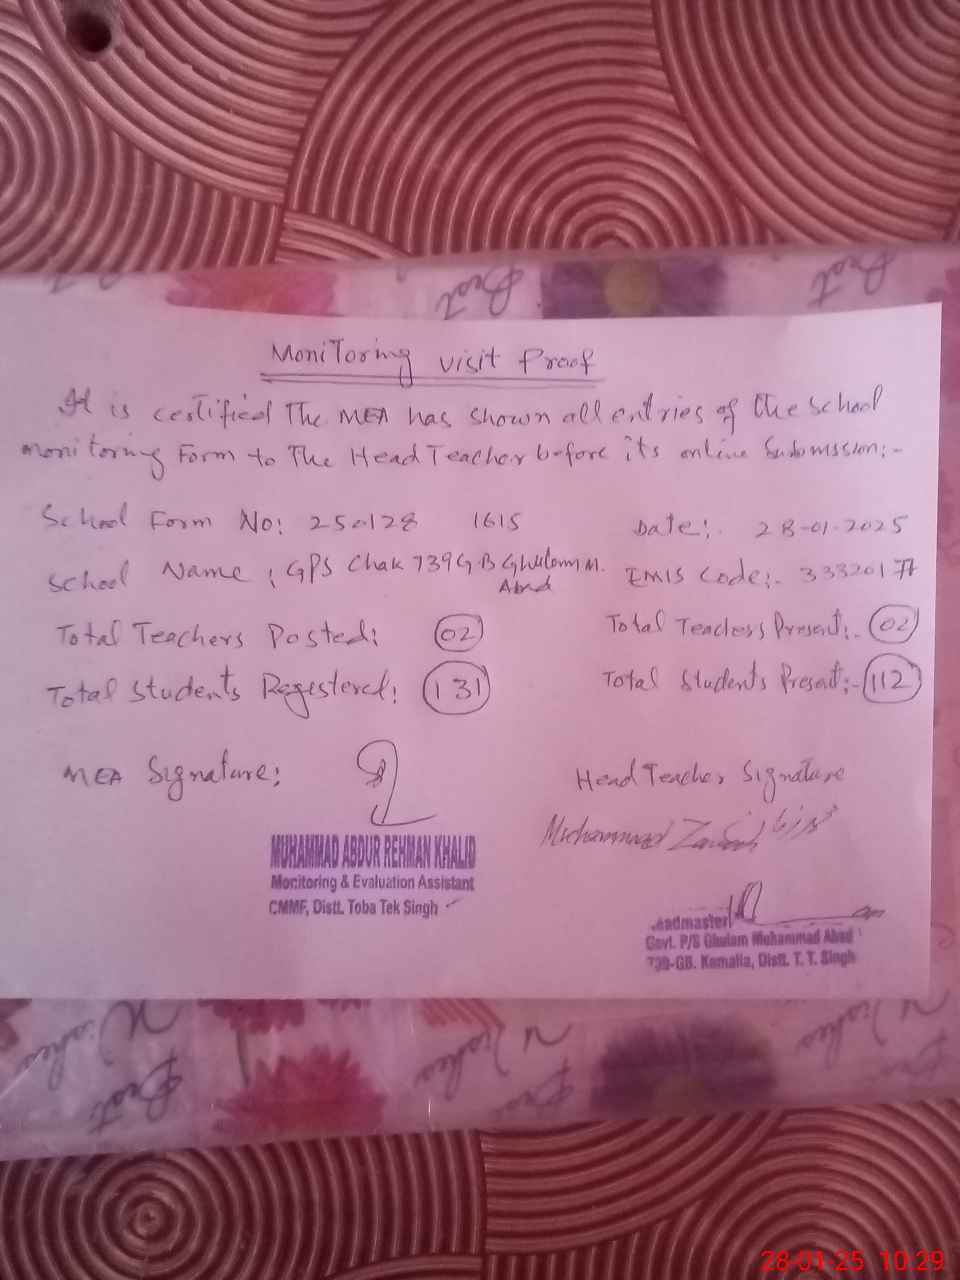 Monitoring visit Proof
It is certified The MEA has shown all entries of the school
monitoring Form to The Head Teacher before its online Submission:-
School Form No: 250128 1615 Date:. 28-01-2025
School Name: GPS Chak 739 GB Ghulam M. Abad EMIS Code:- 333201
Total Teachers Posted: 02 Total Teachers Present:- 02
Total Students Registered: 131 Total Students Present:- 112
MEA Signature: Head Teacher Signature
Muhammad
MUHAMMAD ABDUR REHMAN KHALID
Monitoring & Evaluation Assistant
CMMF, Distt. Toba Tek Singh
eadmaster
Govt. P/S Ghulam Muhammad Abad
739-GB. Kamalia, Distt. T. T. Singh
28-01-25 10:29